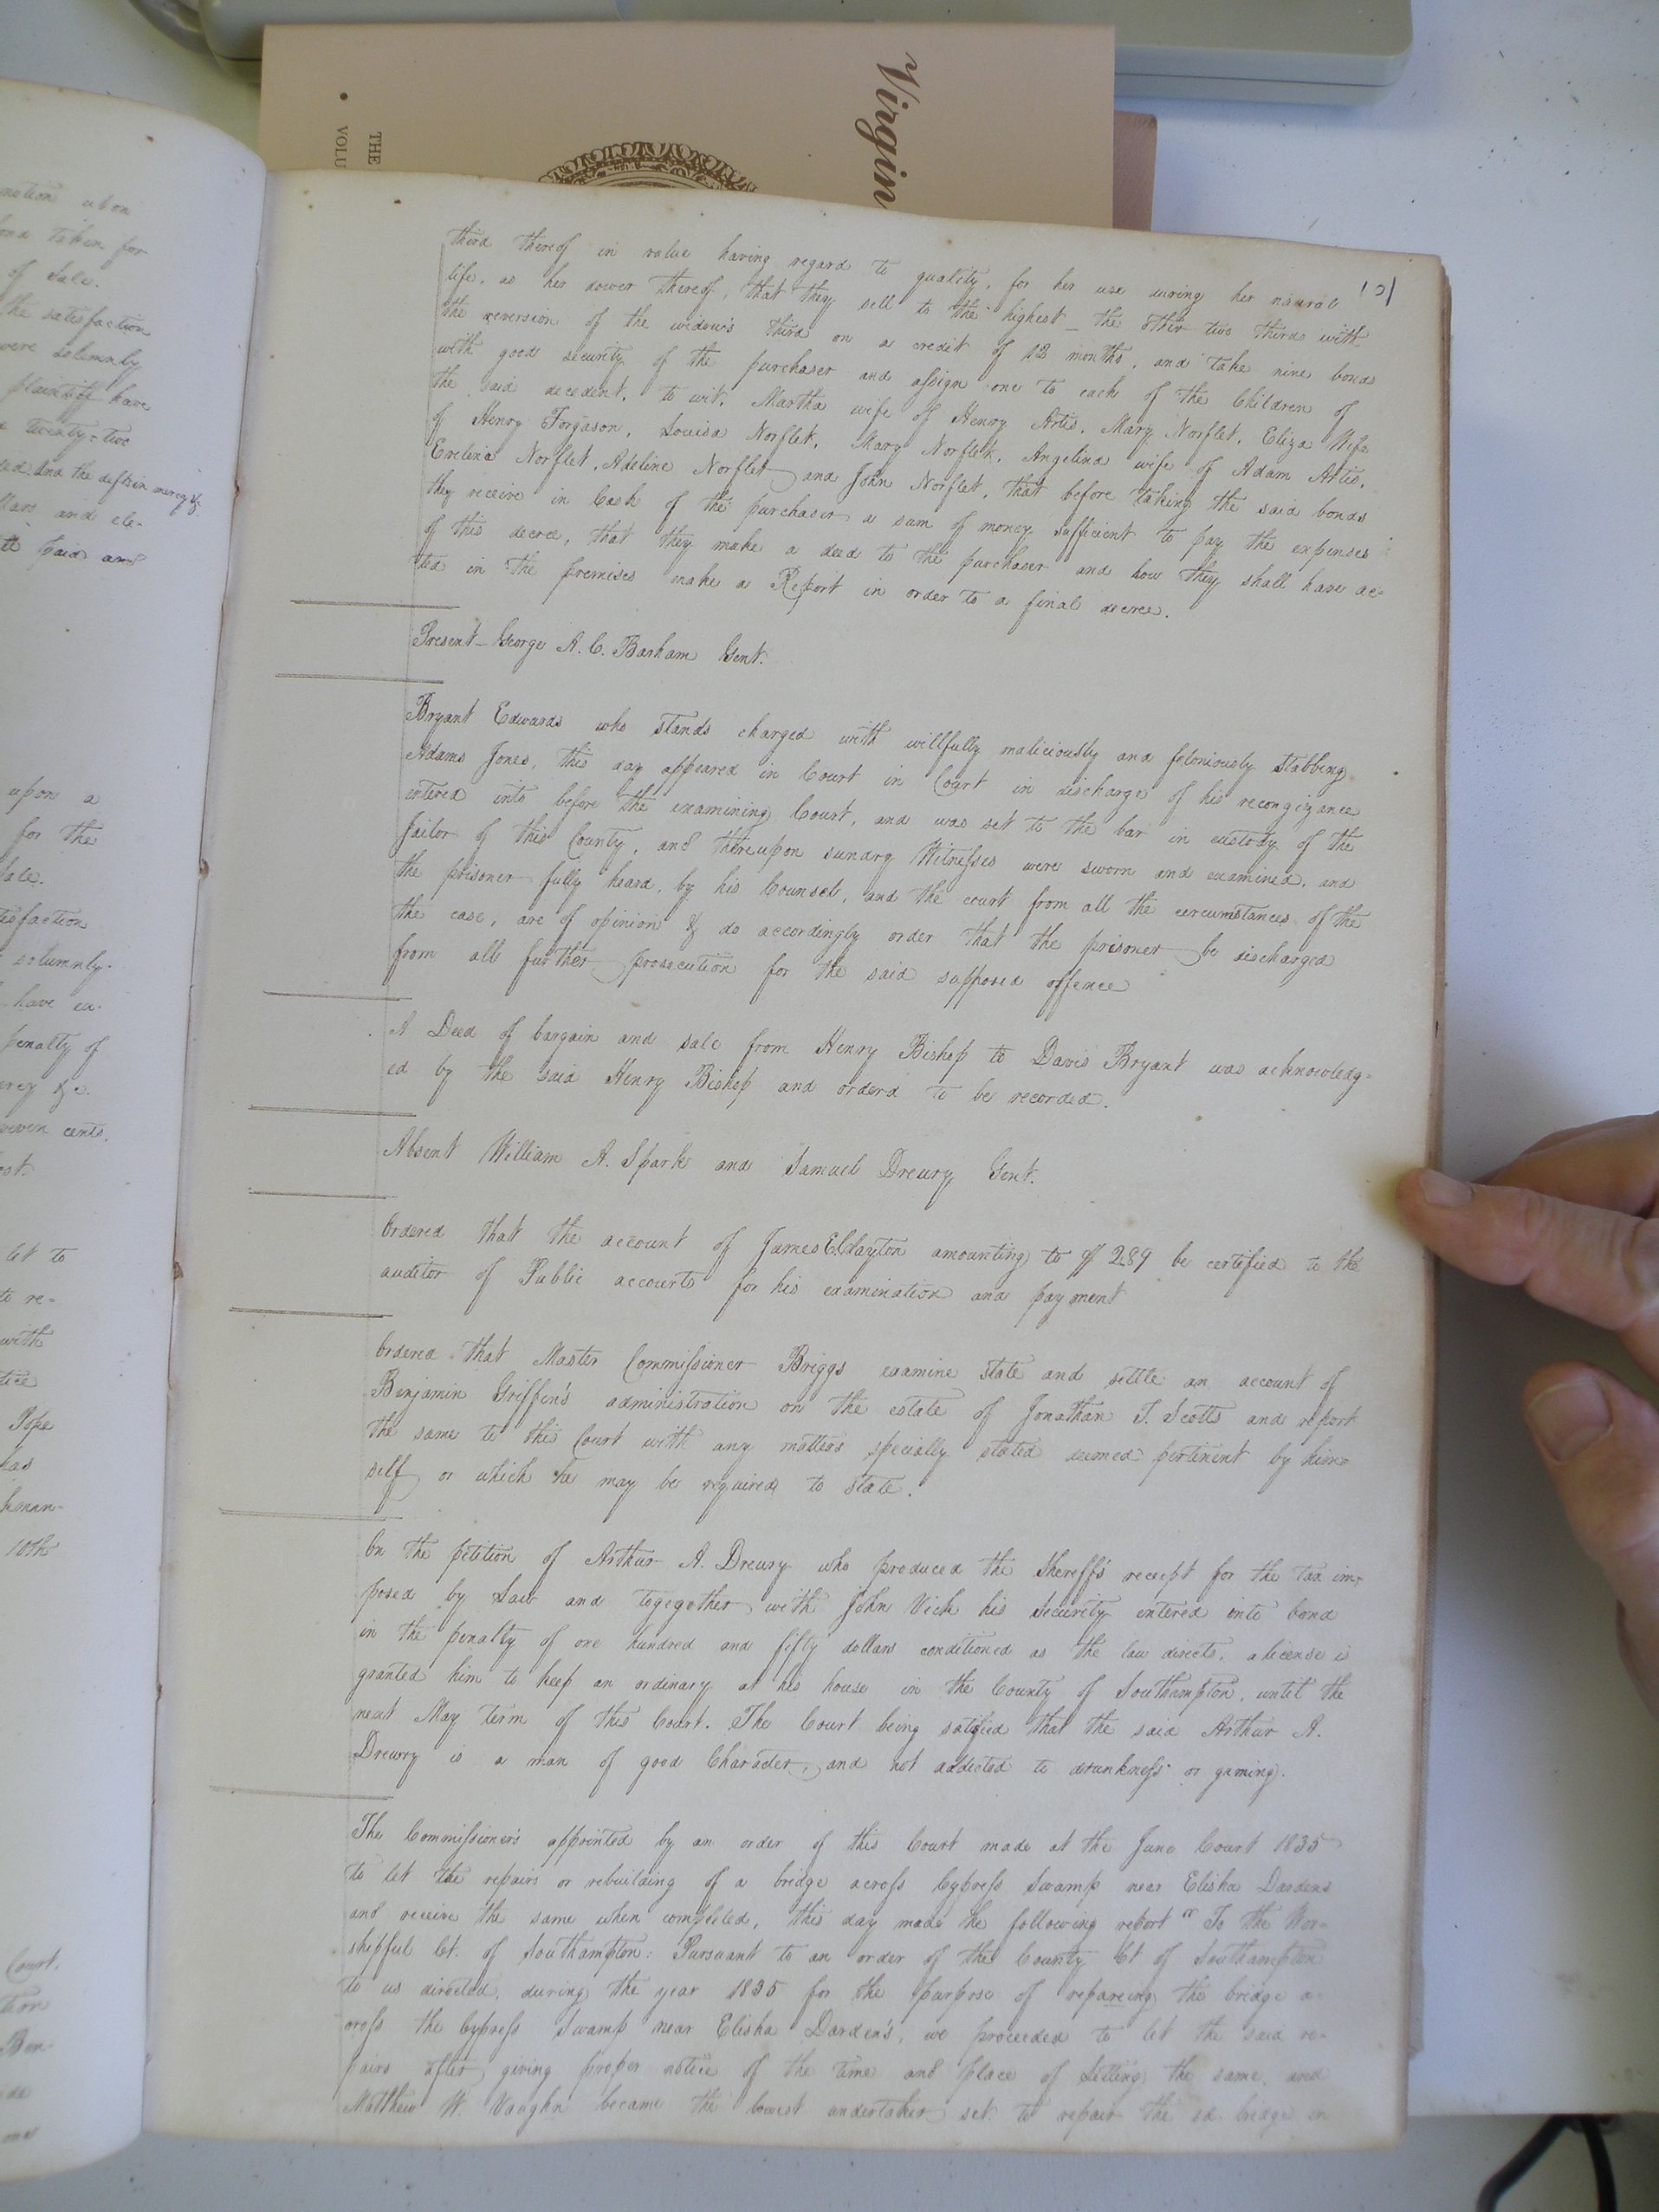 Virgin
THE
VOLU
101
third thereof in value having regard to quality, for her use during her natural
life, as her dower thereof, that they sell to the highest _ the other two thirds with
the reversion of the widow's third on a credit of 12 months, and take nine bonds
with good security of the purchaser and assign one to each of the Children of
the said decedent, to wit, Martha wife of Henry Artis, Mary Norflet, Eliza Wife
of Henry Forgason, Louisa Norflet, Mary Norflet, Angelina wife of Adam Artis,
Evelina Norflet, Adeline Norflet and John Norflet, that before taking the said bonds
they receive in Cash of the purchaser a sum of money sufficient to pay the expenses
of this decree, that they make a deed to the purchaser and how they shall have ac-
ted in the premises make a Report in order to a final decree.
Present _ George A. C. Barham Gent.
Bryant Edwards who stands charged with willfully maliciously and feloniously stabbing
Adams Jones, this day appeared in Court in Court in discharge of his recongizance
entered into before the examining Court, and was set to the bar in custody of the
Jailor of this County, and thereupon sundry Witnesses were sworn and examined, and
the prisoner fully heard, by his Counsel, and the court from all the circumstances of the
the case, are of opinion & do accordingly order that the prisoner be discharged
from all further prosecution for the said supposed offence
A Deed of bargain and sale from Henry Bishop to Davis Bryant was acknowledg-
ed by the said Henry Bishop and orderd to be recorded.
Absent William A. Spark and Samuel Drewry Gent.
Ordered that the account of James E. Clayton amounting to $ 289 be certified to the
auditor of Public accounts for his examination and payment
Ordered that Master Commissioner Briggs examine state and settle an account of
Benjamin Griffin's administration on the estate of Jonathan T. Scotts and report
the same to this Court with any matters specially stated deemed pertinent by him-
self or which he may be required to state.
On the petition of Arthur A. Drewry who produced the Sheriff's receipt for the tax im-
posed by Law and togegother with John Vick his security entered into bond
in the penalty of one hundred and fifty dollars conditioned as the law directs, a license is
granted him to keep an ordinary at his house in the County of Southampton, until the
next May term of this Court. The Court being satified that the said Arthur A.
Drewry is a man of good Character, and not addicted to drunkness or gaming.
The Commissioners appointed by an order of this Court made at the June Court 1835
to let the repairs or rebuilding of a bridge across Cypress Swamp near Elisha Dardens
and receive the same when completed, this day made the following report " To the Wor-
shipful Ct. of Southampton: Pursuant to an order of the County Ct of Southampton
to us directed, during the year 1835 for the purpose of repareing the bridge a-
cross the Cypress Swamp near Elisha Darden's, we proceeded to let the said re-
pairs after giving proper notice of the time and place of Letting the same, and
Matthew W. Vaughn became the lowest undertaker set to repair the sd. bridge in